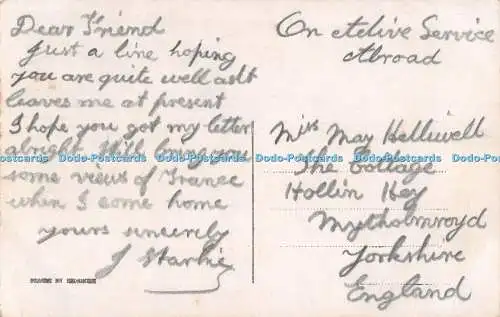 Dear Friend
just a line hoping
you are quite well as it
leaves me at present
I hope you got my letter
alright. Will bring you
some views of France
when I come home
yours sincerely
J Starkie
On Active Service
Abroad
Miss May Helliwell
The Cottage
Hollin Hey
Mytholmroyd
Yorkshire
England
Dodo-Postcards Dodo-Postcards Dodo-Postcards Dodo-Postcards Dodo-Postcards Dodo-Postcards